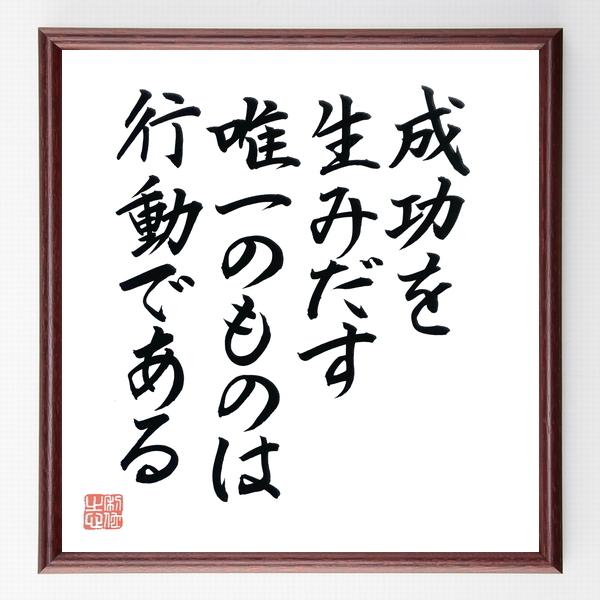 成功を
生みだす
唯一のものは
行動である